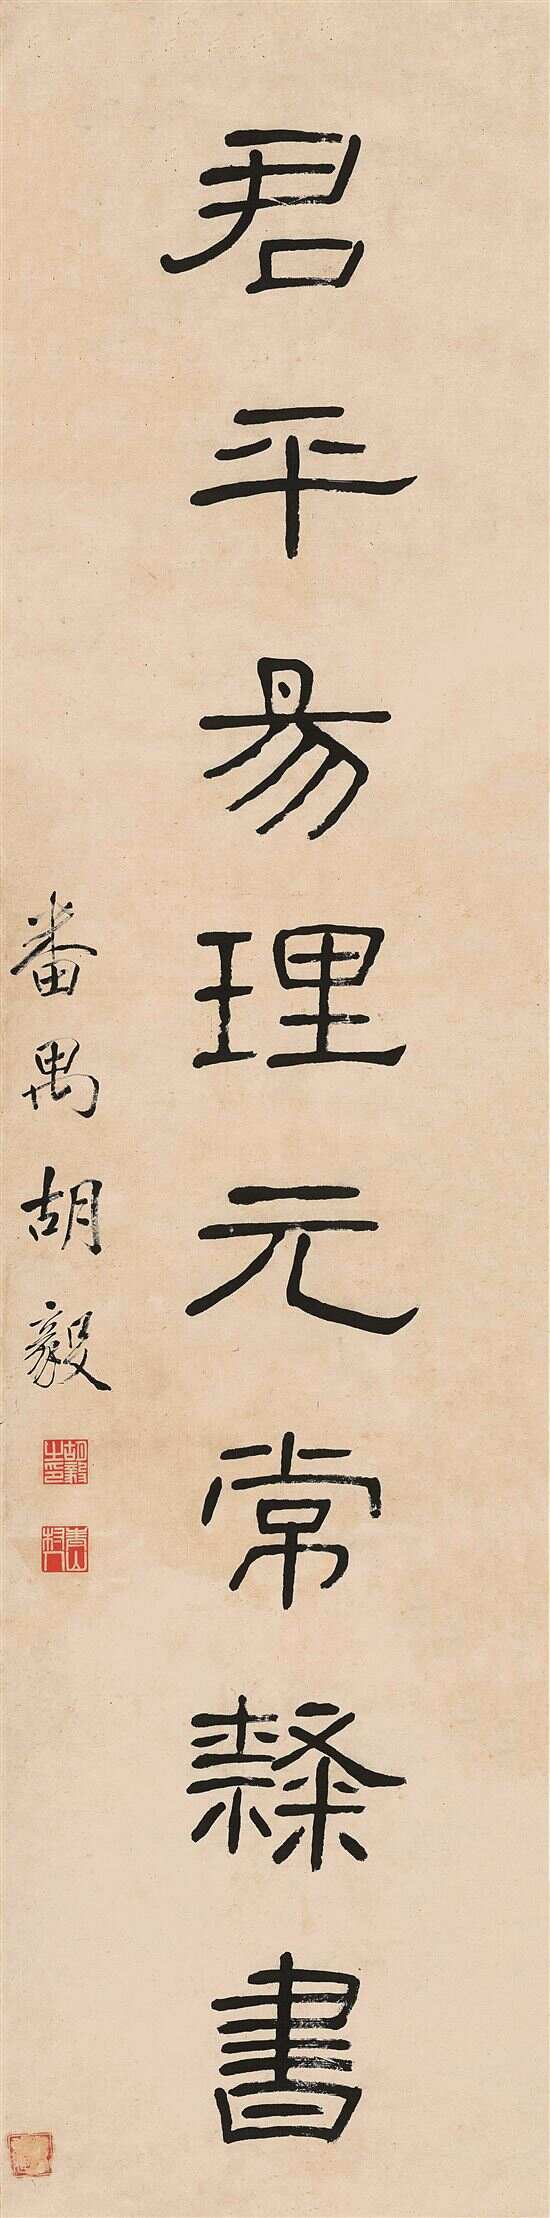 君平易理元常隸書
番禺胡毅
胡毅之印